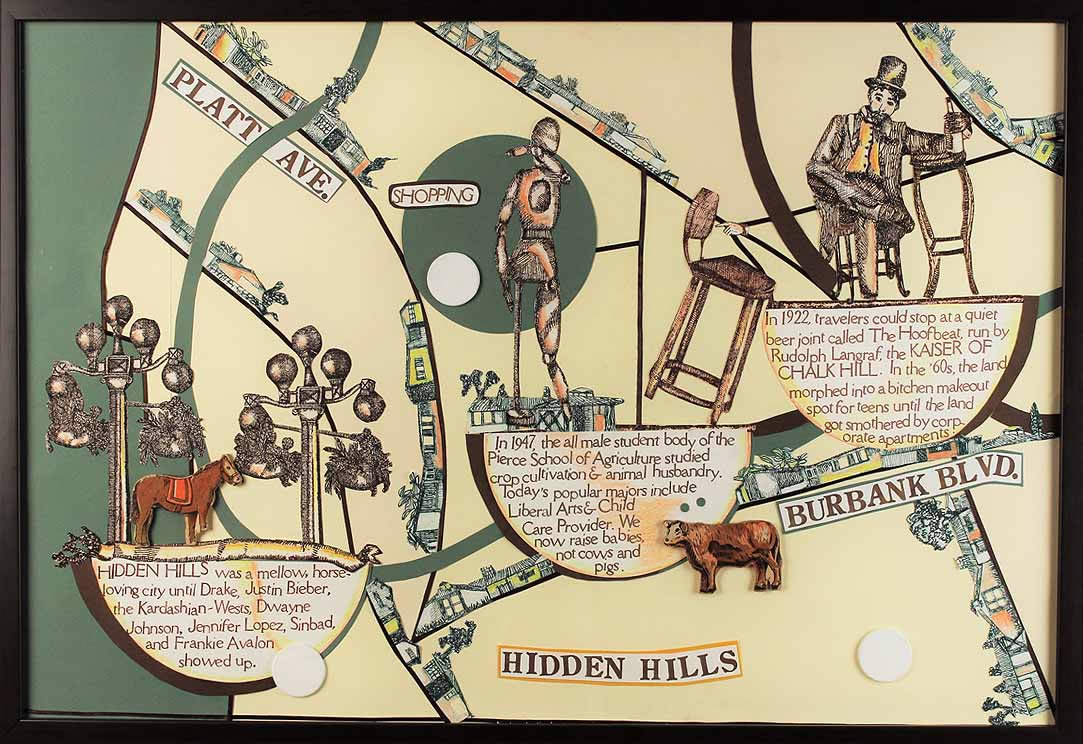 PLATT AVE.
SHOPPING
In 1922, travelers could stop at a quiet
beer joint called The Hoofbeat, run by
Rudolph Langraf, the KAISER OF
CHALK HILL. In the '60s, the land
morphed into a bitchen makeout
spot for teens until the land
got smothered by corp-
orate apartments
In 1947, the all male student body of the
Pierce School of Agriculture studied
crop cultivation & animal husbandry.
Today's popular majors include
Liberal Arts & Child
Care Provider. We
now raise babies,
not cows and
pigs.
BURBANK BLVD.
HIDDEN HILLS was a mellow, horse-
loving city until Drake, Justin Bieber,
the Kardashian-Wests, Dwayne
Johnson, Jennifer Lopez, Sinbad,
and Frankie Avalon
showed up.
HIDDEN HILLS